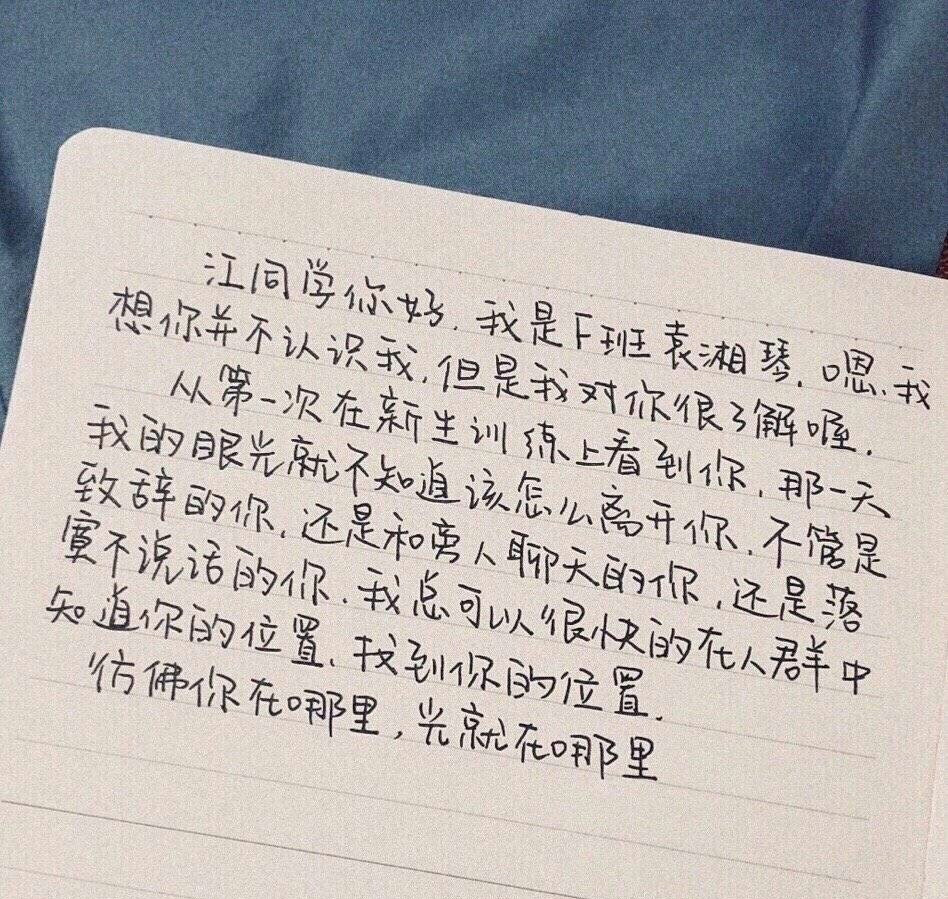 江同学你好.我是F班袁湘琴.嗯.我
想你并不认识我,但是我对你很了解喔.
从第一次在新生训练上看到你.那一天
我的眼光就不知道该怎么离开你.不管是
致辞的你.还是和旁人聊天的你,还是落
寞不说话的你.我总可以很快的在人群中
知道你的位置.找到你的位置.
仿佛你在哪里,光就在哪里